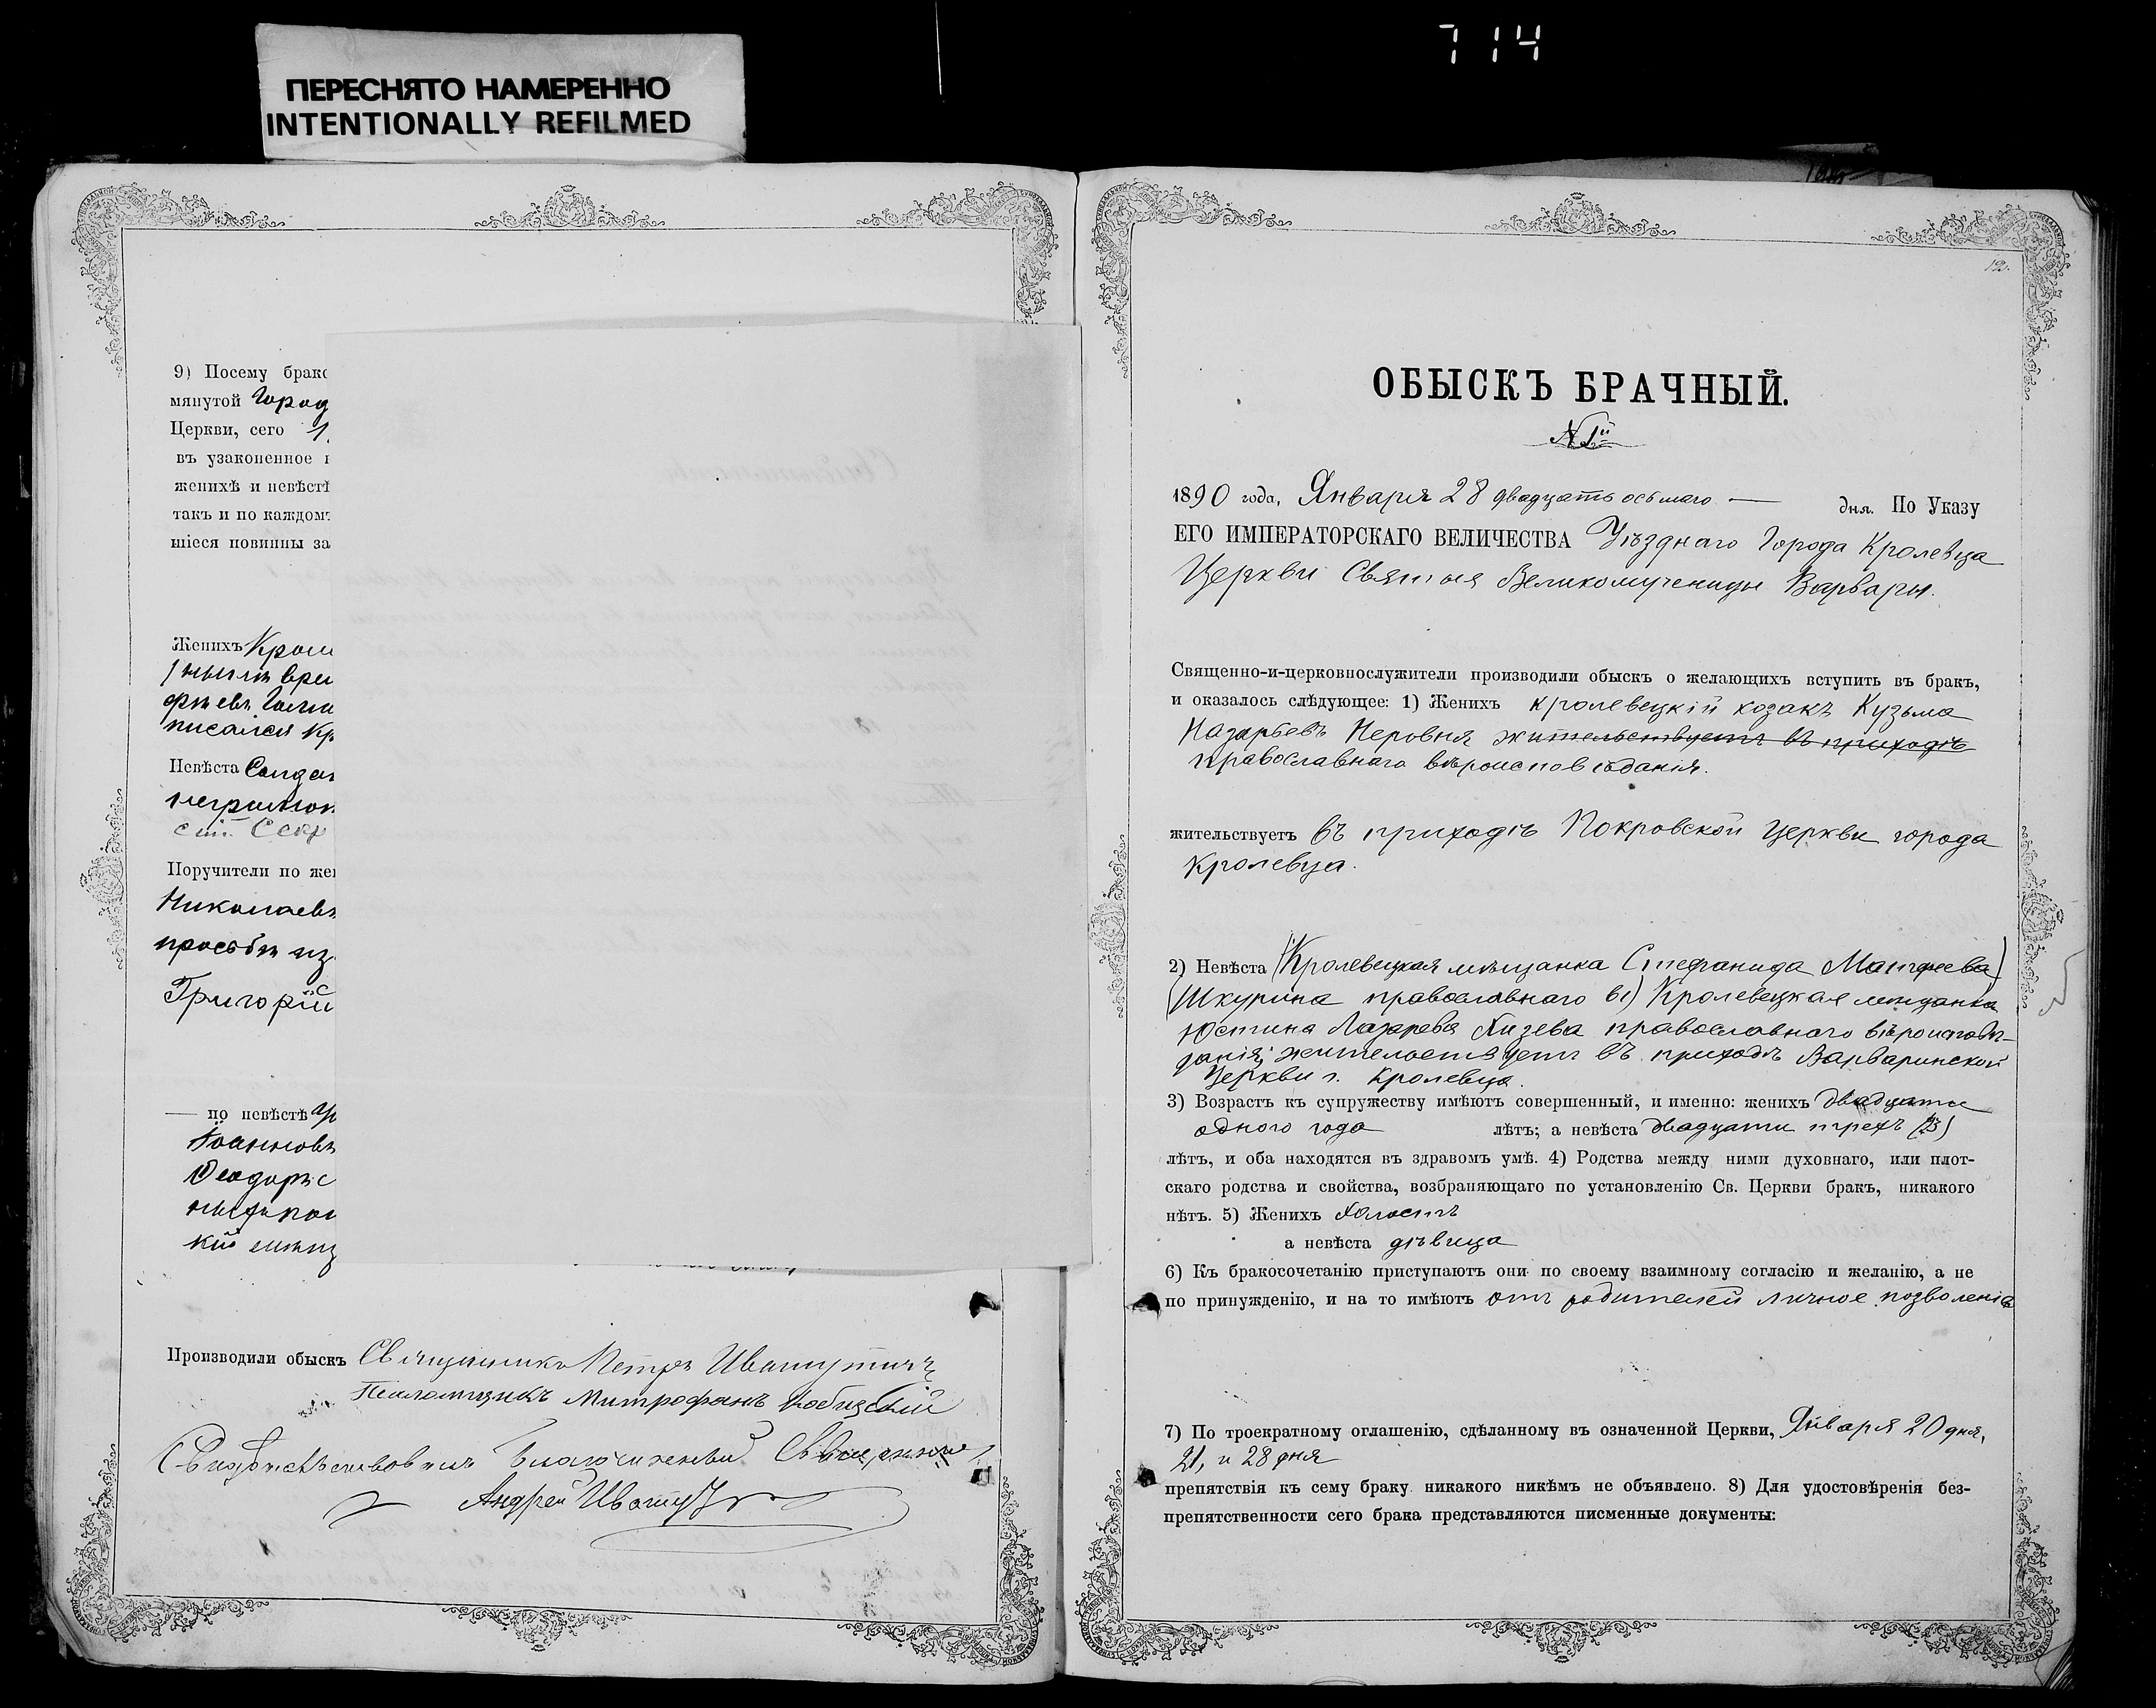 714
ПЕРЕСНЯТО НАМЕРЕННО
INTENTIONALLY REFILMED
9) Посему брако
мянутой Город
Церкви, сего
въ узаконенное
женихѣ и невѣстѣ
такъ и по каждом
шіеся повинны за
Женихъ
писался Кр
Невѣста Солда
неграмот
Поручители по же
Николаевъ
просьбѣ
Григорій
— по невѣстѣ
Іоанновъ
Ѳеодоръ
Производили обыскъ Священникъ Петръ Ивашутичъ
Псаломщикъ Митрофанъ
Свидѣтельствовалъ Благочинный Священникъ
Андрей
12.
ОБЫСКЪ БРАЧНЫЙ.
N 1й
1890 года, Января 28 двадцать осьмаго — дня. По Указу
ЕГО ИМПЕРАТОРСКАГО ВЕЛИЧЕСТВА Уѣзднаго Города Кролевца
Церкви Святыя Великомученицы Варвары.
Священно-и-церковнослужители производили обыскъ о желающихъ вступить въ бракъ,
и оказалось слѣдующее: 1) Женихъ кролевецкій козакъ Кузьма
Назарьевъ Неровня жительствуетъ въ приходѣ
православнаго вѣроисповѣданія.
жительствуетъ въ приходѣ Покровской Церкви города
Кролевца.
2) Невѣста (Кролевецкая мѣщанка Стефанида Матфеева)
(Шкурина православнаго в) Кролевецкая мѣщанка
Юстина Лазарева православнаго вѣроисповѣ-
данія; жительствуетъ въ приходѣ Варваринской
Церкви г. Кролевца.
3) Возрастъ къ супружеству имѣютъ совершенный, и именно: женихъ двадцати
одного года лѣтъ; а невѣста двадцати трехъ (23)
лѣтъ, и оба находятся въ здравомъ умѣ. 4) Родства между ними духовнаго, или плот-
скаго родства и свойства, возбраняющаго по установленію Св. Церкви бракъ, никакого
нѣтъ. 5) Женихъ холостъ
а невѣста дѣвица
6) Къ бракосочетанію приступаютъ они по своему взаимному согласію и желанію, а не
по принужденію, и на то имѣютъ отъ родителей личное позволеніе
7) По троекратному оглашенію, сдѣланному въ означенной Церкви, Января 20 дня,
21, и 28 дня
препятствія къ сему браку никакого никѣмъ не объявлено. 8) Для удостовѣренія без-
препятственности сего брака представляются писменные документы: